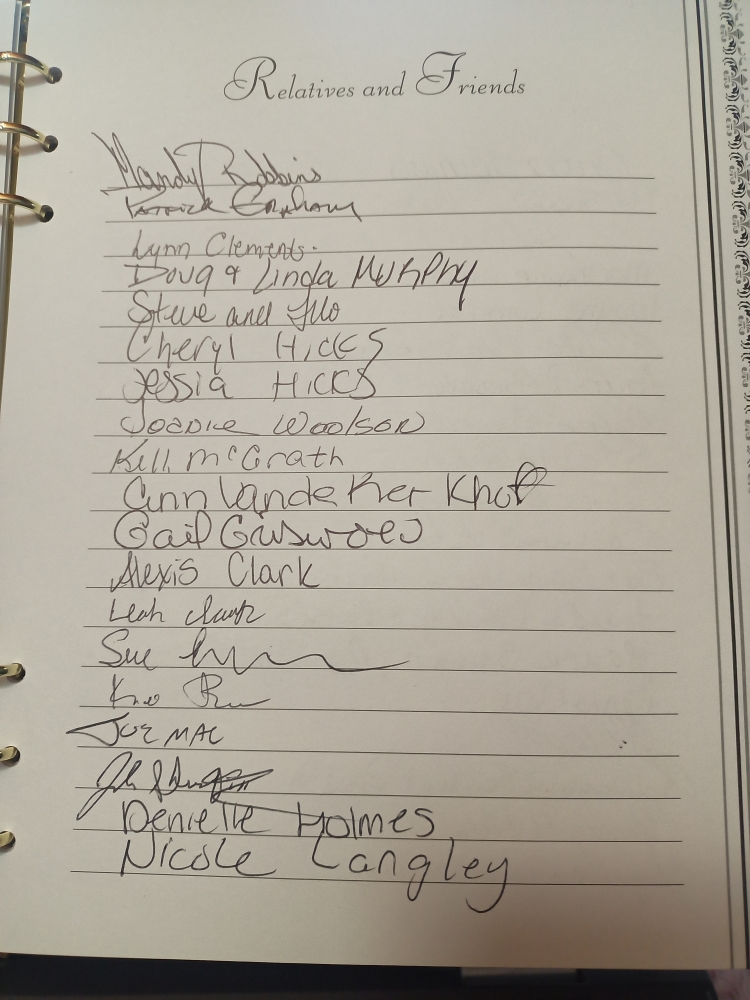 Relatives and Friends
Mandy Robbins
Patrick Graham
Lynn Clements.
Doug & Linda Murphy
Steve and Flo
Cheryl Hicks
Jessia Hicks
Joanne Woolson
McGrath
Ann VandeKerKhoff
Gail Griswold
Alexis Clark
Leah Clark
Sue
JOE MAC
John
Denielle Holmes
Nicole Langley